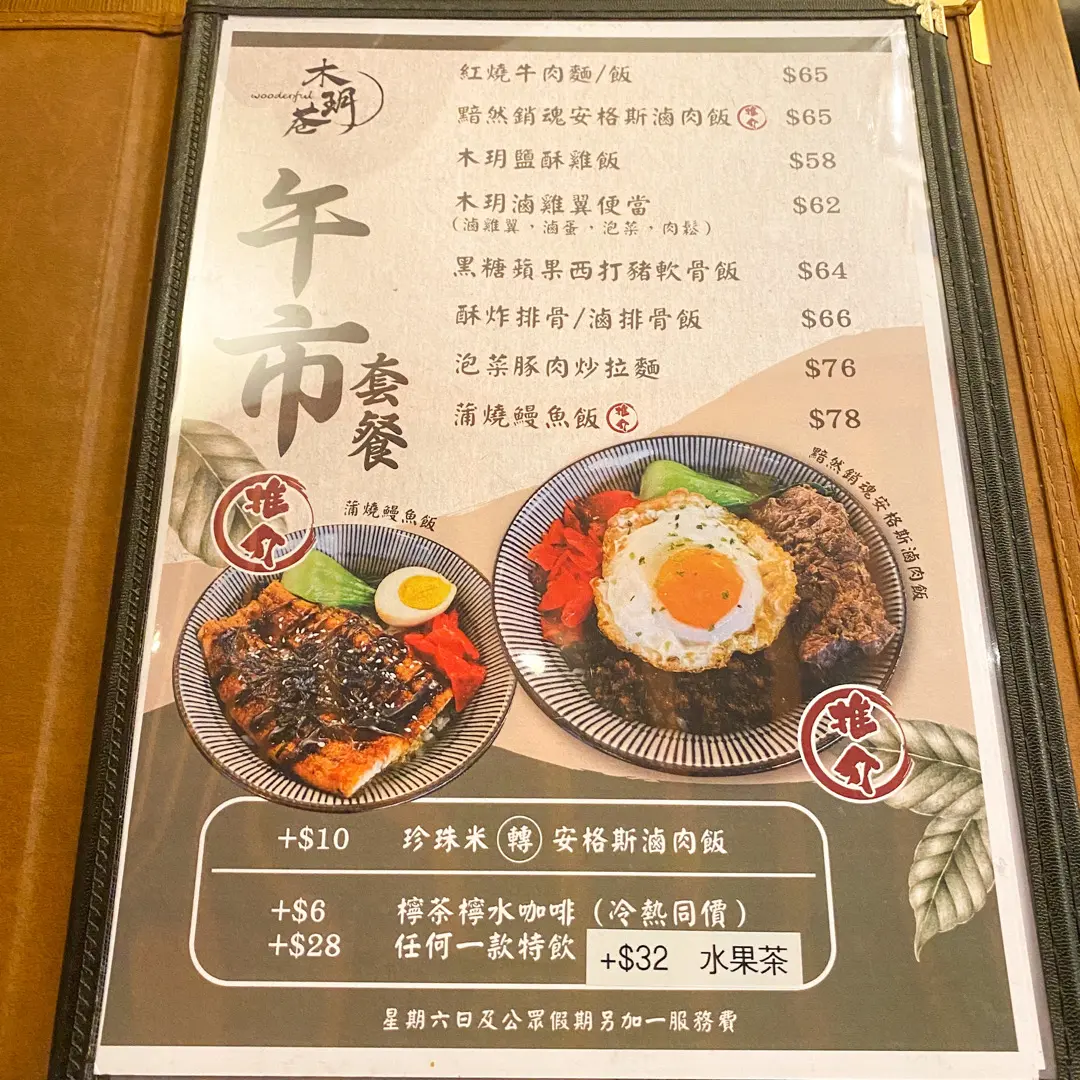 木玥
wooderful
巷
午市
套餐
紅燒牛肉麵/飯 $65
黯然銷魂安格斯滷肉飯 推介 $65
木玥鹽酥雞飯 $58
木玥滷雞翼便當 $62
(滷雞翼，滷蛋，泡菜，肉鬆)
黑糖蘋果西打豬軟骨飯 $64
酥炸排骨/滷排骨飯 $66
泡菜豚肉炒拉麵 $76
蒲燒鰻魚飯 推介 $78
推介
蒲燒鰻魚飯
黯然銷魂安格斯滷肉飯
推介
+$10 珍珠米 轉 安格斯滷肉飯
+$6 檸茶檸水咖啡（冷熱同價）
+$28 任何一款特飲
+$32 水果茶
星期六日及公眾假期另加一服務費